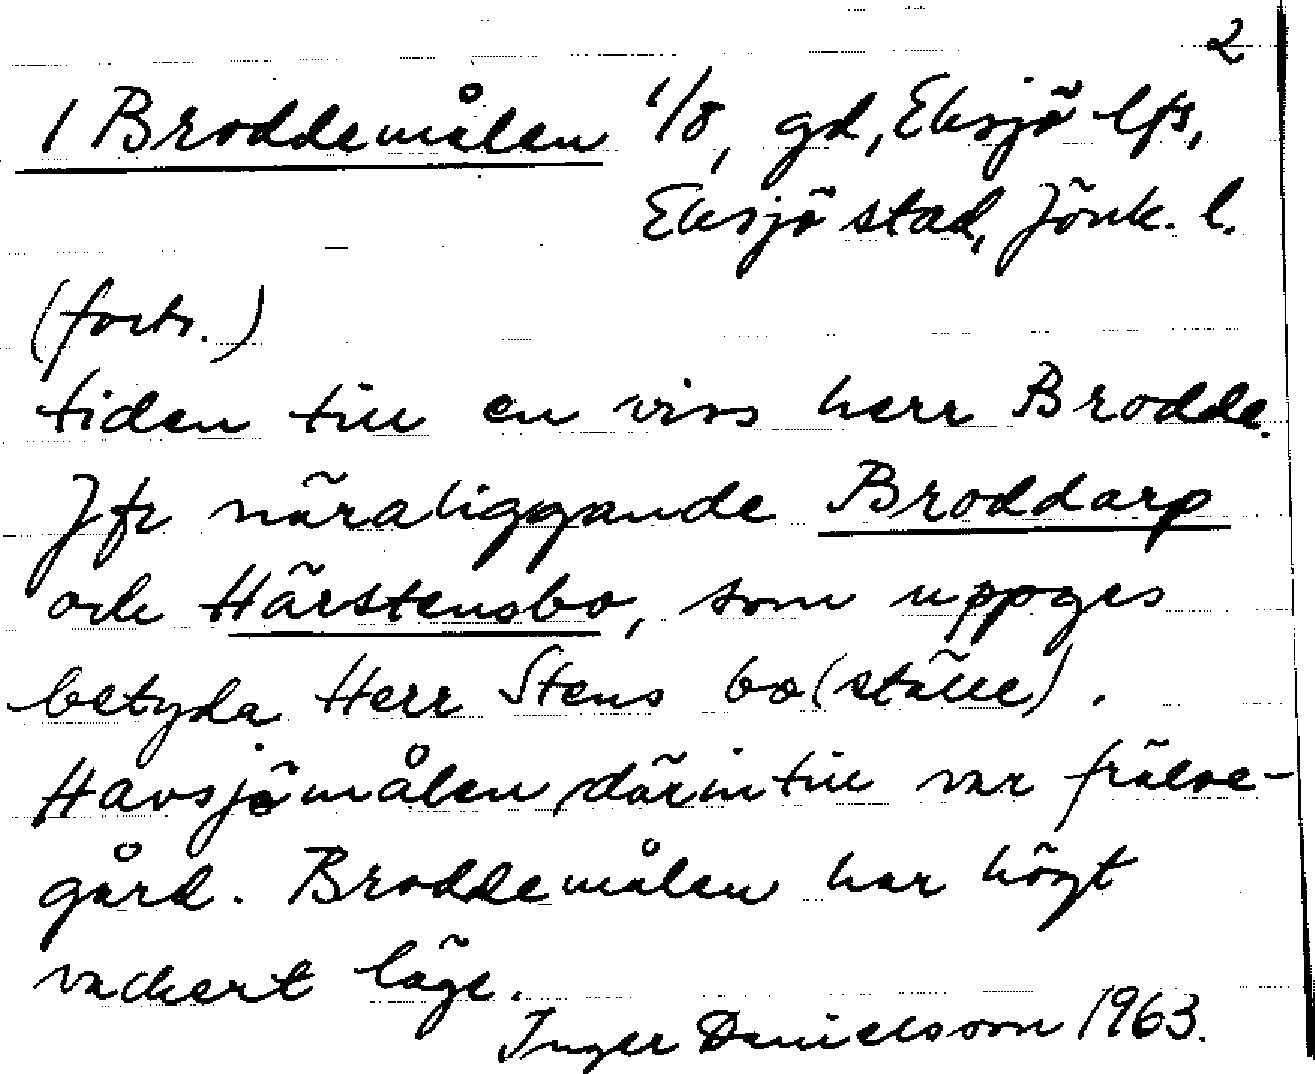 2
1 Broddemålen 1/8, gd, Eksjö lfs,
Eksjö stad, Jönk. l.
(forts.)
tiden till en viss herr Brodde.
Jfr näraliggande Broddarp
och Härstensbo, som uppges
betyda Herr Stens bo(ställe).
Havsjömålen därintill var frälse-
gård. Broddemålen har högt
vackert läge.
Inger Danielsson 1963.